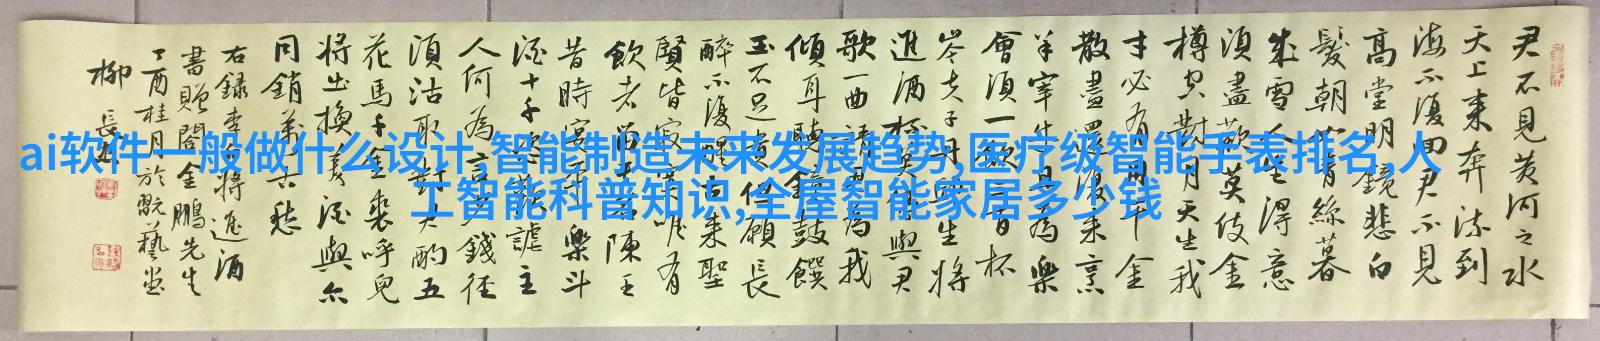 君不見黄河之水
天上来奔流到
海不復回君不見
高堂明鏡悲白
髮朝如青絲暮
成雪人生得意
須盡歡莫使金
樽空對月天生我
才必有用千金
散盡還復来烹
羊宰牛且為樂
會須一飲三百杯
岑夫子丹丘生將
進酒杯莫停與君
歌一曲請君為我
傾耳聽鐘鼓饌
玉不足貴但願長
醉不復醒古来聖
賢皆寂寞唯有
飲者留其名陳王
昔時宴平樂斗
酒十千恣歡謔主
人何為言少錢徑
須沽取對君酌五
花馬千金裘呼兒
將出換美酒與尔
同銷萬古愁
右録李白將進酒
書贈閻金鵬先生
丁酉桂月於翫藝堂
柳長
ai软件一般做什么设计,智能制造未来发展趋势,医疗级智能手表排名,人
工智能科普知识,全屋智能家居多少钱